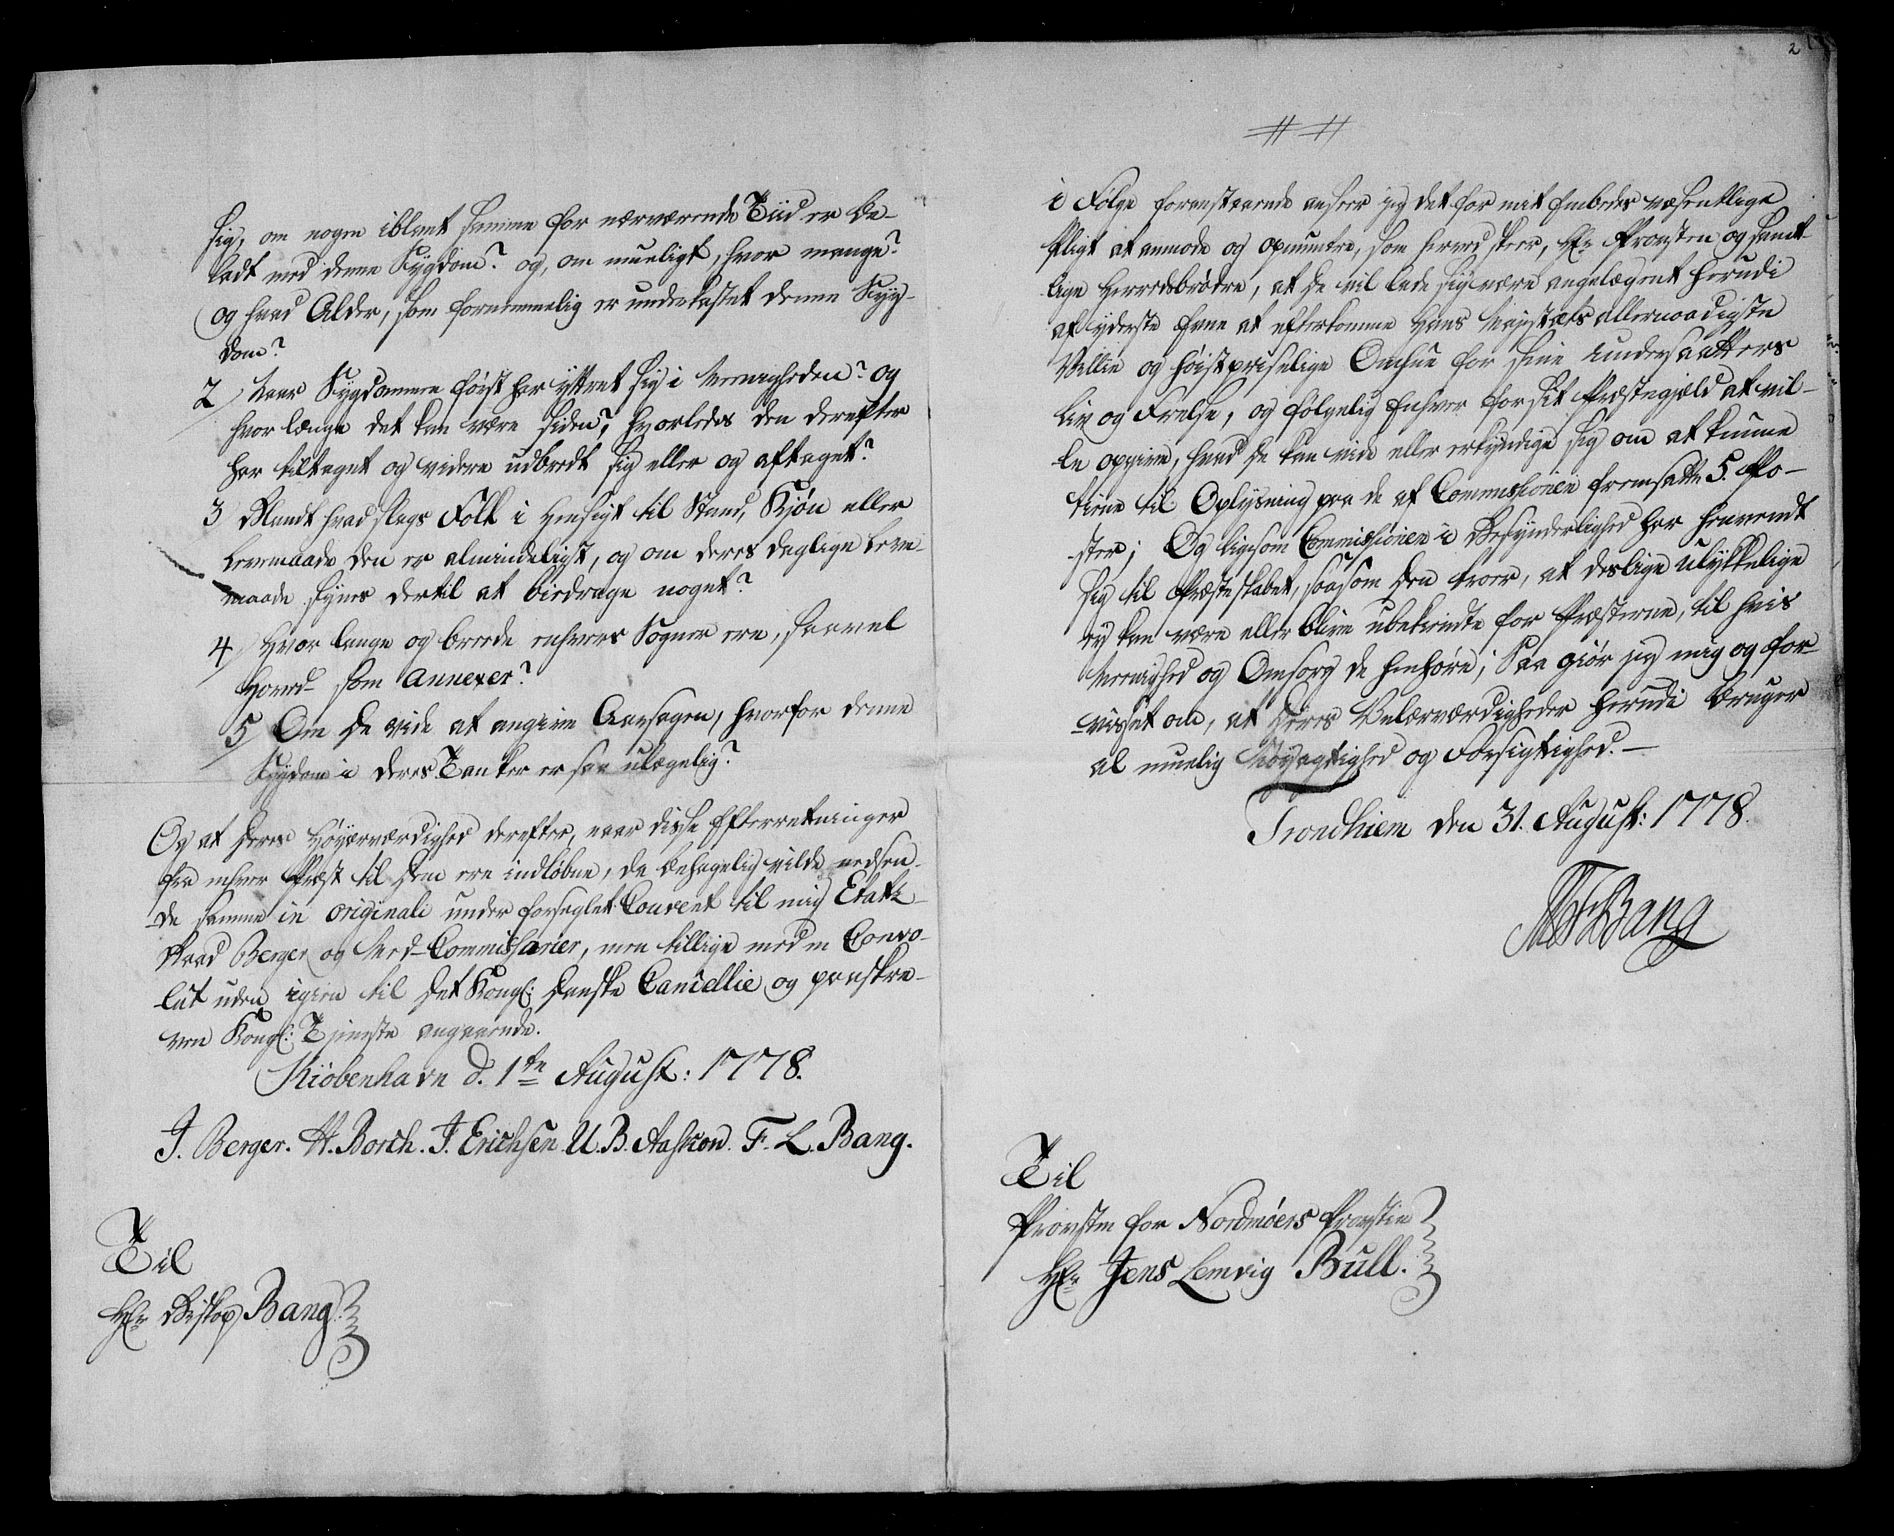 sig, om nogen iblant samme for nærværende Tiid er be-
ladt med denne Sygdom? og, om mueligt, hvor mange?
og hvad Alder, som fornemmelig er underkastet denne Syg-
dom?
2/ Naar Sygdommen først har yttret sig i Menigheden? og
hvor længe det kan være siden? hvorledes den derefter
har tiltaget og videre udbredt sig eller og aftaget?
3 Blandt hvad slags Folk i Hensigt til Stand, Kjøn eller
Levemaade den er almindeligst, og om deres daglige Leve-
maade synes dertil at bidrage noget?
4/ Hvor lange og brede enhvers Sogner ere, saavel
Hoved- som Annexer?
5/ Om De vide at angive Aarsagen, hvorfor denne
Sygdom i deres Tanker er saa ulægelig?
Og at Deres Høyærværdighed derefter, naar disse Efterretninger
fra enhver Præst til Dem ere indløbne, da behagelig vilde nedsen-
de samme in originali under forseglet Couvert til mig Etats-
Raad Berger og Med-Commissarier, men tillige med en Convo-
lut uden igien til Det Kongl: Danske Cancellie og paaskre-
ven Kongl: Tjeneste angaaende.
Kiøbenhavn d. 1te August: 1778.
J. Berger. H. Borch. J. Erichsen. U. B. Aaskow. F. L. Bang.
Til
Hr Biskop Bang
2
i Følge foranstaaende anseer jeg det for mit Embedes væsentlige
Pligt at anmode og opmuntre, som herved skeer, Hr Provsten og samt-
lige Herredsbrødre, at De vil lade sig være angelægent herudi
af yderste Evne at efterkomme Hans Majestæts allernaadigste
Villie og høistpriselige Omhue for sine Undersaatters
Liv og Frelse, og følgelig Enhver for sit Præstegjeld at vil-
le opgive, hvad De kan vide eller erkyndige sig om at kunne
tiene til Oplysning paa de af Commissionen fremsatte 5. Po-
ster; Og ligesom Commissionen i Besynderlighed har henvendt
sig til Præsteskabet, saasom Den troer, at deslige Ulykkelige
ey kan være eller blive ubekiendte for Præsterne, til hvis
Menighed og Omsorg de henhøre; Saa giør jeg mig og for-
visset om, at Deres Velærværdigheder herudi bruger
al muelig Nøyagtighed og Forsigtighed.
Trondhiem den 31. August: 1778.
MFBang
Til
Provsten for Nordmøers Provstie
Hr Jens Lemvig Bull.